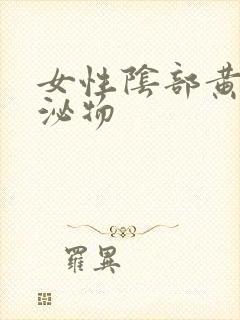 女性陰部黃
泌物
羅異